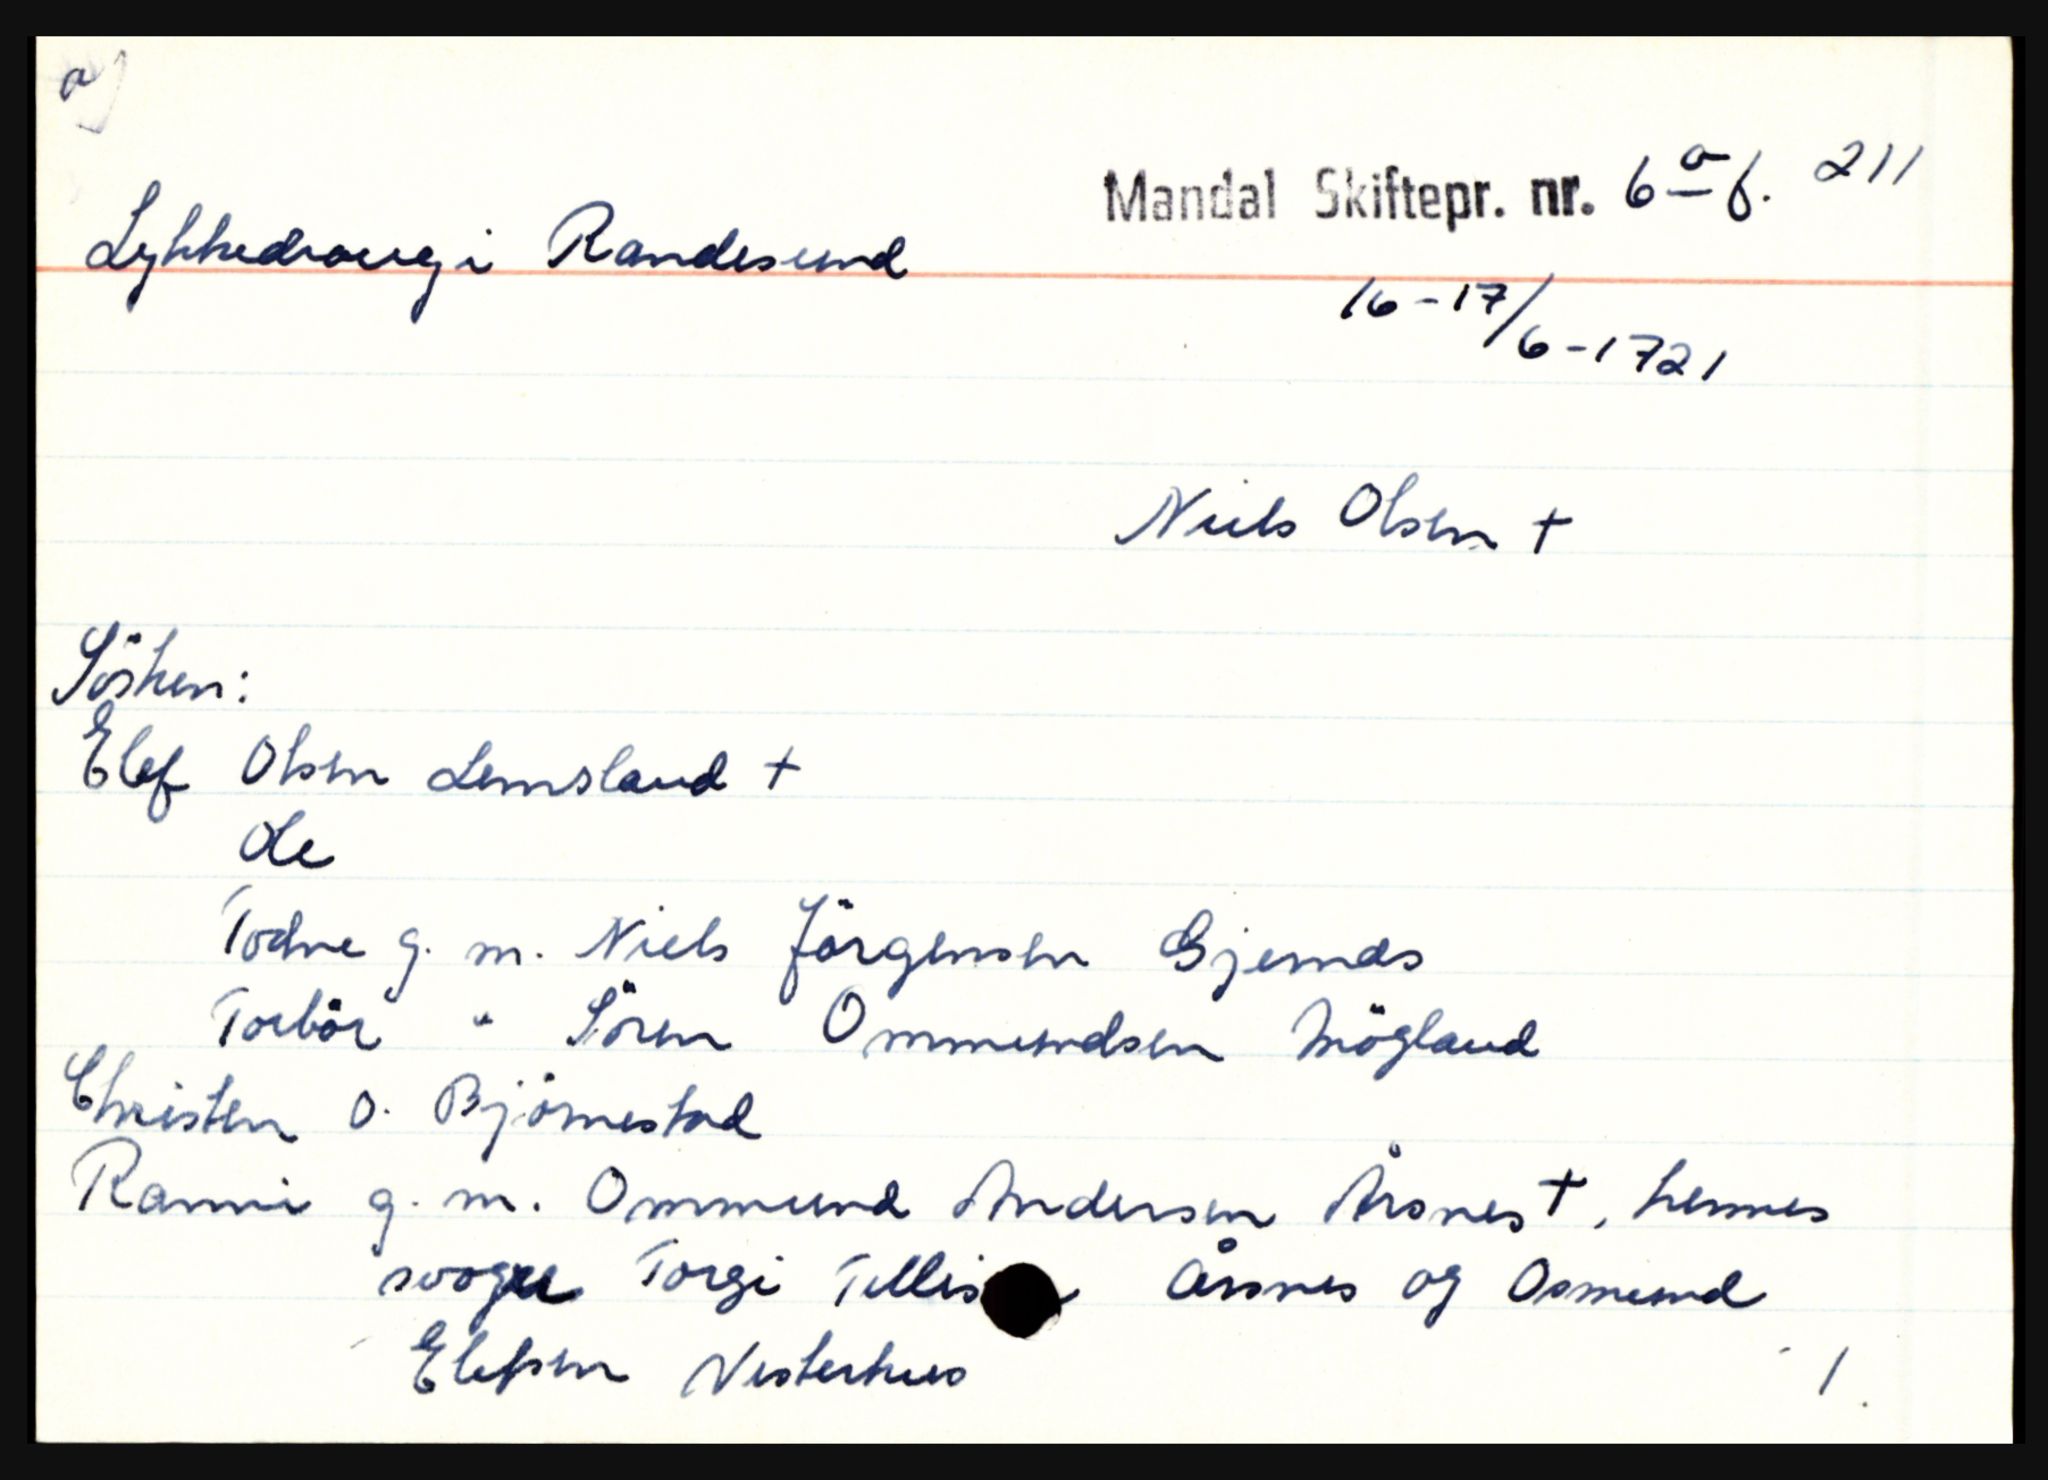 a)
Mandal Skiftepr. nr. 6a f. 211
Lykkedraug i Randesund
16-17/6-1721
Niels Olsen +
Sösken:
Elef Olsen Lemsland +
Ole
Todne g. m. Niels Jörgensen Gjernds
Torbör " Sören Ommundsen Mögland
Christen O. Björnestad
Ranni g. m. Ommund Andersen Årsnes +, hennes
svoger Torgi Tellis Årsnes og Osmund
Elefsen Vesterhus
1.